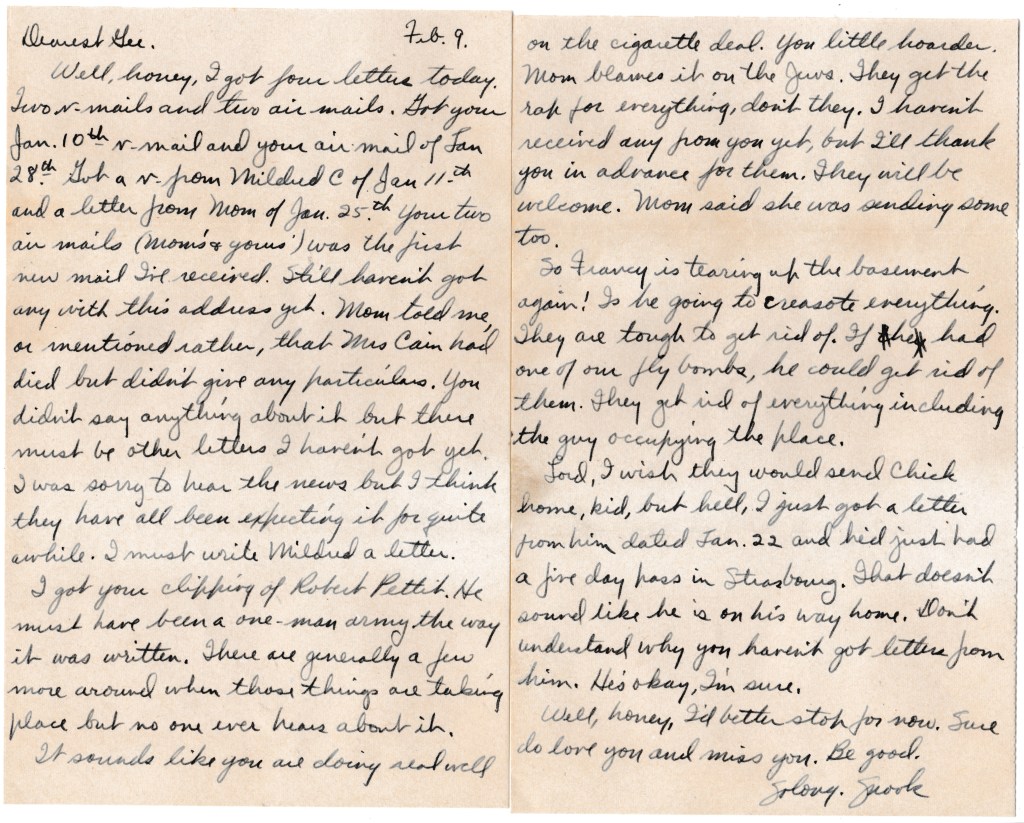 Dearest Gee. Feb. 9.
Well, honey, I got four letters today.
Two v-mails and two air mails. Got your
Jan. 10th v-mail and your air mail of Jan
28th. Got a v- from Mildred C of Jan 11th
and a letter from Mom of Jan. 25th. Your two
air mails (Mom's & yours') was the first
new mail I've received. Still haven't got
any with this address yet. Mom told me,
or mentioned rather, that Mrs Cain had
died but didn't give any particulars. You
didn't say anything about it but there
must be other letters I haven't got yet.
I was sorry to hear the news but I think
they have all been expecting it for quite
awhile. I must write Mildred a letter.
I got your clipping of Robert Pettit. He
must have been a one-man army the way
it was written. There are generally a few
more around when those things are taking
place but no one ever hears about it.
It sounds like you are doing real well
on the cigarette deal. You little hoarder.
Mom blames it on the Jews. They get the
rap for everything, don't they. I haven't
received any from you yet, but I'll thank
you in advance for them. They will be
welcome. Mom said she was sending some
too.
So Francy is tearing up the basement
again! Is he going to creasote everything.
They are tough to get rid of. If he had
one of our fly bombs, he could get rid of
them. They get rid of everything including
the guy occupying the place.
Lord, I wish they would send Chick
home, kid, but hell, I just got a letter
from him dated Jan. 22 and he'd just had
a five day pass in Strasbourg. That doesn't
sound like he is on his way home. Don't
understand why you haven't got letters from
him. He's okay, I'm sure.
Well, honey, I'd better stop for now. Sure
do love you and miss you. Be good.
Solong. Snook